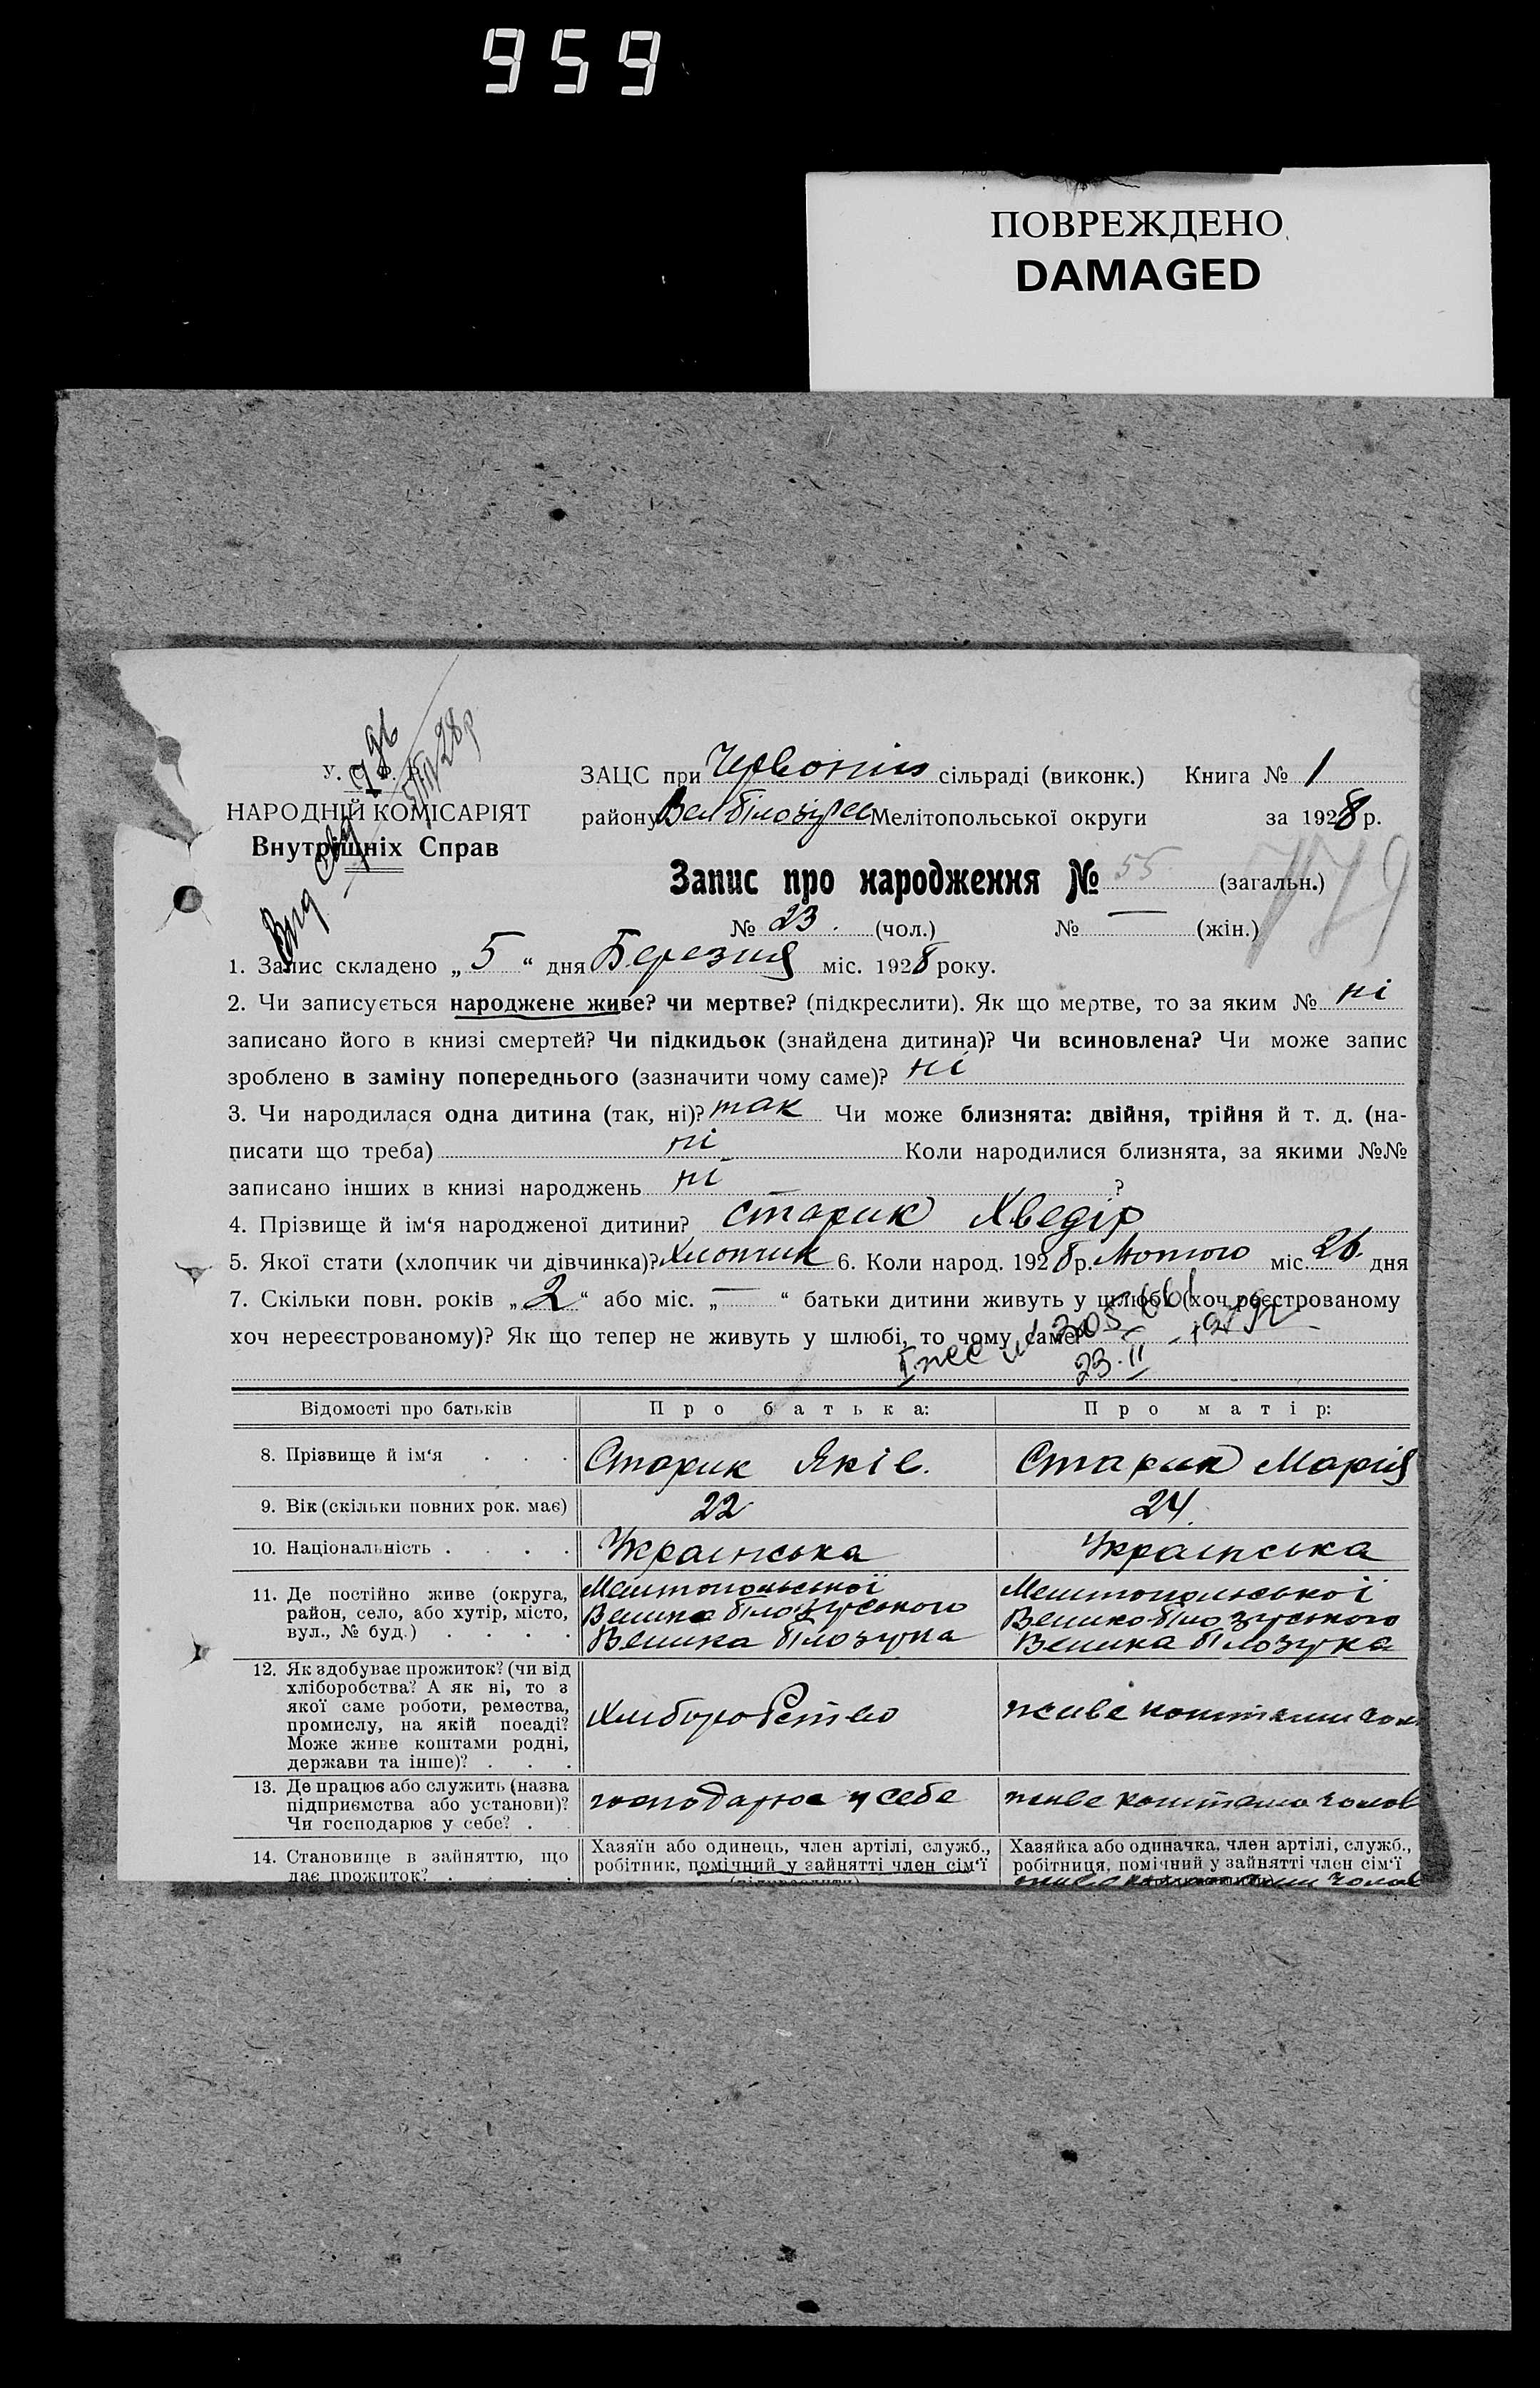 959
ПОВРЕЖДЕНО
DAMAGED
У. С. Р. Р.
НАРОДНІЙ КОМІСАРІЯТ
Внутрішніх Справ
28р
ЗАЦС при сільраді (виконк.) Книга № 1
району Вел білозірсь Мелітопольської округи за 1928 р.
Запис про народження № 55 (загальн.)
779
№ 23. (чол.) № — (жін.)
1. Запис складено „ 5 “ дня Березня міс. 1928 року.
2. Чи записується народжене живе? чи мертве? (підкреслити). Як що мертве, то за яким № ні
записано його в книзі смертей? Чи підкидьок (знайдена дитина)? Чи всиновлена? Чи може запис
зроблено в заміну попереднього (зазначити чому саме)? ні
3. Чи народилася одна дитина (так, ні)? так Чи може близнята: двійня, трійня й т. д. (на-
писати що треба) ні Коли народилися близнята, за якими №№
записано інших в книзі народжень ні ?
4. Прізвище й ім‘я народженої дитини? Старик Хведір
5. Якої стати (хлопчик чи дівчинка)? Хлопчик 6. Коли народ. 1928 р. Лютого міс. 26 дня
7. Скільки повн. років „ 2 “ або міс. „ — “ батьки дитини живуть у шлюбі (хоч реєстрованому
хоч нереєстрованому)? Як що тепер не живуть у шлюбі, то чому саме?
23.II
Відомості про батьків Про батька: Про матір:
8. Прізвище й ім‘я . . . Старик Яків. Старик Марія
9. Вік (скільки повних рок. має) 22 24.
10. Національність . . . . Українська Українська
11. Де постійно живе (округа, Мелітопольської Мелітопольської
район, село, або хутір, місто, Велико білозірського Велико-білозірського
вул., № буд.) . . . . Велика білозірка Велика білозірка
12. Як здобуває прожиток? (чи від
хліборобства? А як ні, то з
якої саме роботи, ремества, Хліборобство живе коштами чол
промислу, на якій посаді?
Може живе коштами родні,
держави та інше)? . . .
13. Де працює або служить (назва господарює у себе живе коштами чолов
підприємства або установи)?
Чи господарює у себе? .
14. Становище в зайняттю, що Хазяїн або одинець, член артілі, служб., Хазяйка або одиначка, член артілі, служб.,
дає прожиток? . . . . робітник, помічний у зайнятті член сім‘ї робітниця, помічний у зайнятті член сім‘ї
(підкреслити) живе коштами чолов